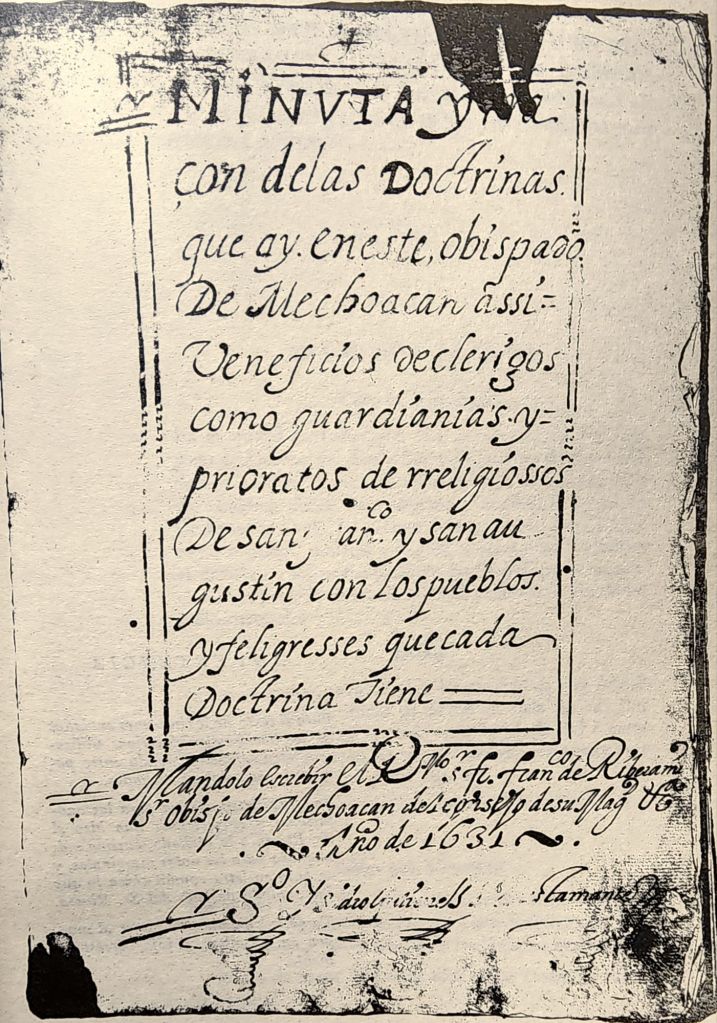 MINVTA y
çon delas Doctrinas.
que ay. eneste, obispado.
De Mechoacan assi=
Veneficios declerigos
como guardianias. y=
prioratos de rreligiossos
De san anco. y san au
gustin con los pueblos.
y feligresses quecada
Doctrina Tiene
Mandolo escrebir el Rmo. sr. fr. franco de Ribera mi
sr obispo de Mechoacan del consejo de su Magd &a
Año de 1631
So